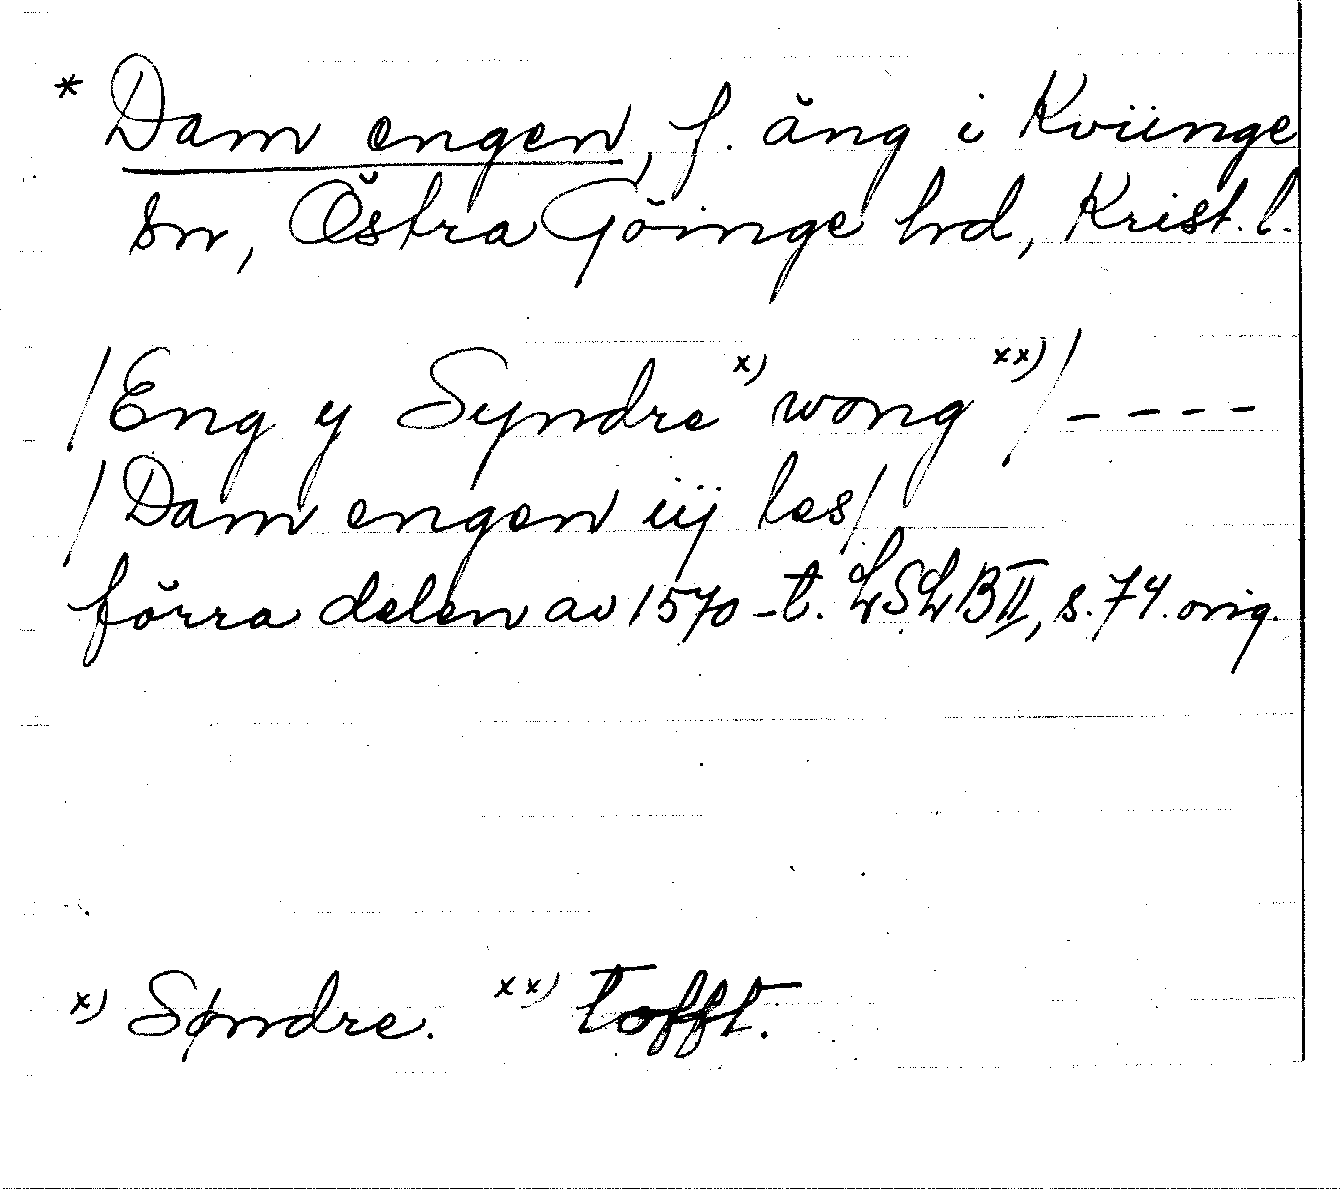 * Dam engen, f. äng i Kviinge
sn, Östra Göinge hd, Krist. l.
/Eng y Syndre x) wong xx)/ - - - -
/Dam engen iij les/
förra delen av 1570-t. LSLB II, s. 74. orig.
x) Søndre. xx) tofft.